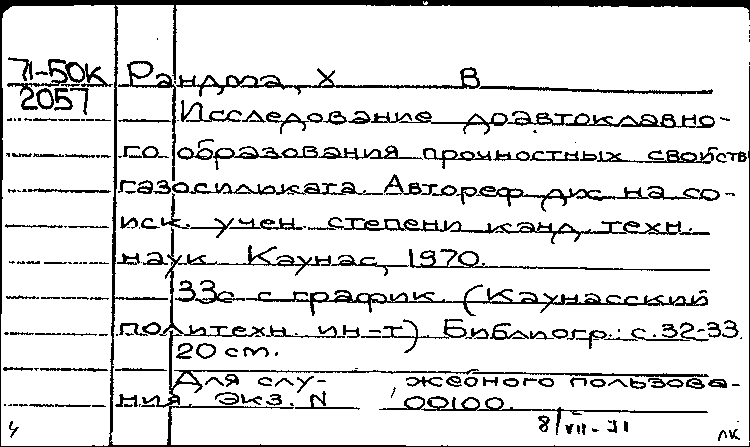 71-50к Рандма, Х В
2057
Исследование доавтоклавно-
го образования прочностных свойств
газосиликата. Автореф дис на со-
иск. учен. степени канд. техн.
наук Каунас, 1970.
33с с график. (Каунасский
политехн. ин-т) Библиогр.: с. 32-33
20 cm.
Для слу- жебного пользова-
ния. Экз. N 00100.
8/VII-71
лк